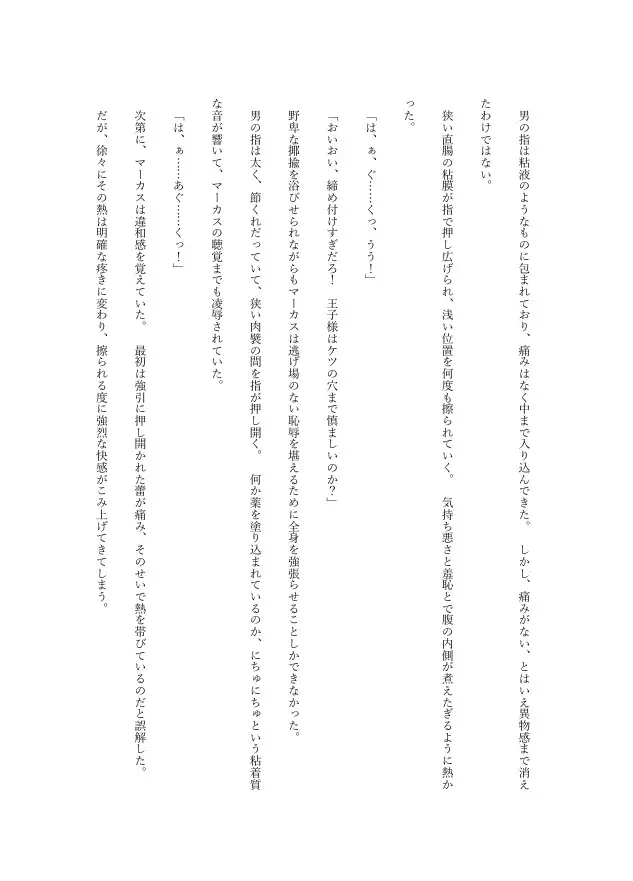 男の指は粘液のようなものに包まれており、痛みはなく中まで入り込んできた。　しかし、痛みがない、とはいえ異物感まで消え
たわけではない。
狭い直腸の粘膜が指で押し広げられ、浅い位置を何度も擦られていく。　気持ち悪さと羞恥とで腹の内側が煮えたぎるように熱か
った。
「は、ぁ、ぐ……くっ、うう！」
「おいおい、締め付けすぎだろ！　王子様はケツの穴まで慎ましいのか？」
野卑な揶揄を浴びせられながらもマーカスは逃げ場のない恥辱を堪えるために全身を強張らせることしかできなかった。
男の指は太く、節くれだっていて、狭い肉襞の間を指が押し開く。　何か薬を塗り込まれているのか、にちゅにちゅという粘着質
な音が響いて、マーカスの聴覚までも凌辱されていた。
「は、ぁ……あぐ……くっ！」
次第に、マーカスは違和感を覚えていた。　最初は強引に押し開かれた蕾が痛み、そのせいで熱を帯びているのだと誤解した。
だが、徐々にその熱は明確な疼きに変わり、擦られる度に強烈な快感がこみ上げてきてしまう。